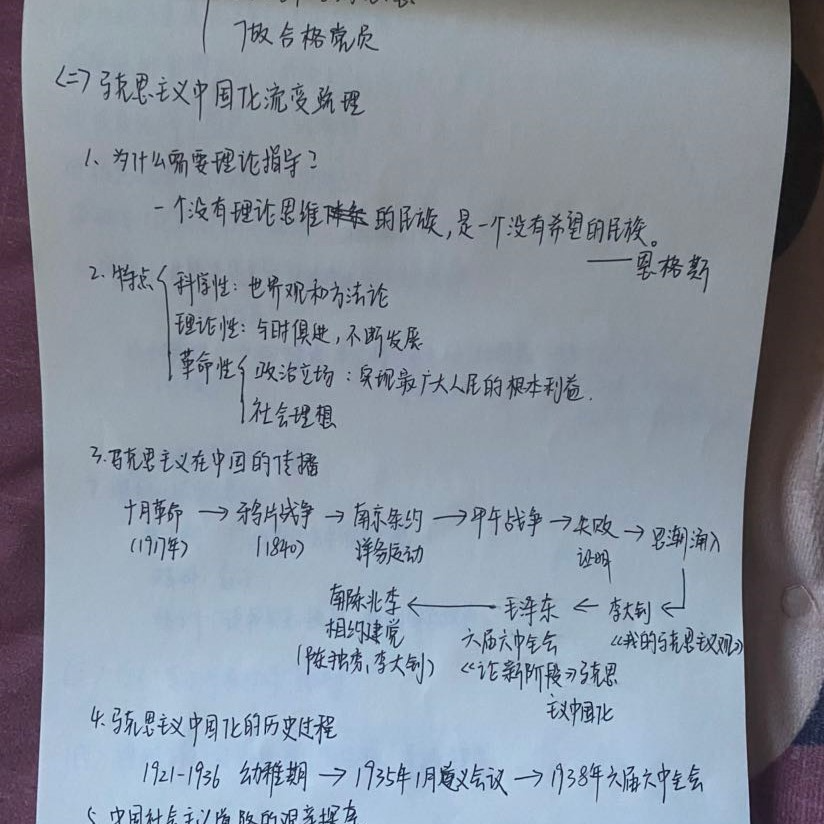 做合格党员
(二) 马克思主义中国化流变梳理
1、为什么需要理论指导?
一个没有理论思维的民族,是一个没有希望的民族。
——恩格斯
2、特点
科学性:世界观和方法论
理论性:与时俱进,不断发展
革命性
政治立场:实现最广大人民的根本利益.
社会理想
3.马克思主义在中国的传播
十月革命 → 鸦片战争 → 南京条约 → 甲午战争 → 失败 → 思潮涌入
(1917年) (1840) 洋务运动 证明
南陈北李 ← 毛泽东 ← 李大钊
相约建党 六届六中全会 《我的马克思主义观》
(陈独秀、李大钊) 《论新阶段》马克思
主义中国化
4.马克思主义中国化的历史过程
1921-1936 幼稚期 → 1935年1月遵义会议 → 1938年六届六中全会
5.中国社会主义道路的艰辛探索